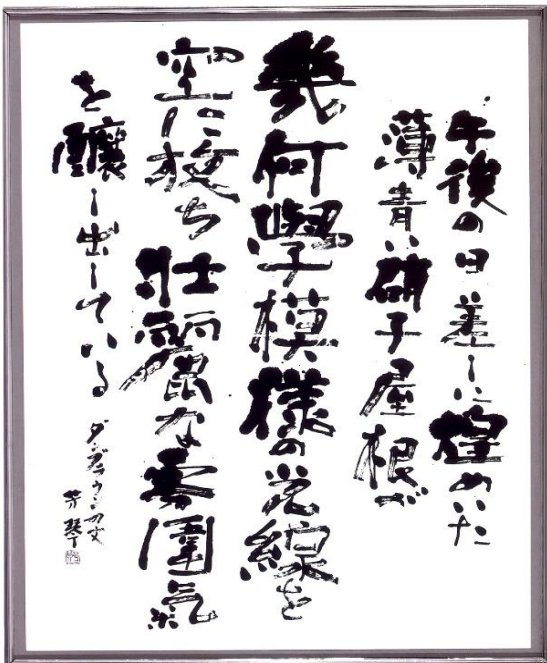 午後の日差しに煌めいた
薄青い硝子屋根が
幾何學模様の光線を
空に放ち 壮麗な雰圍氣
を醸し出している
ダン・ブラウンの文
芳琴